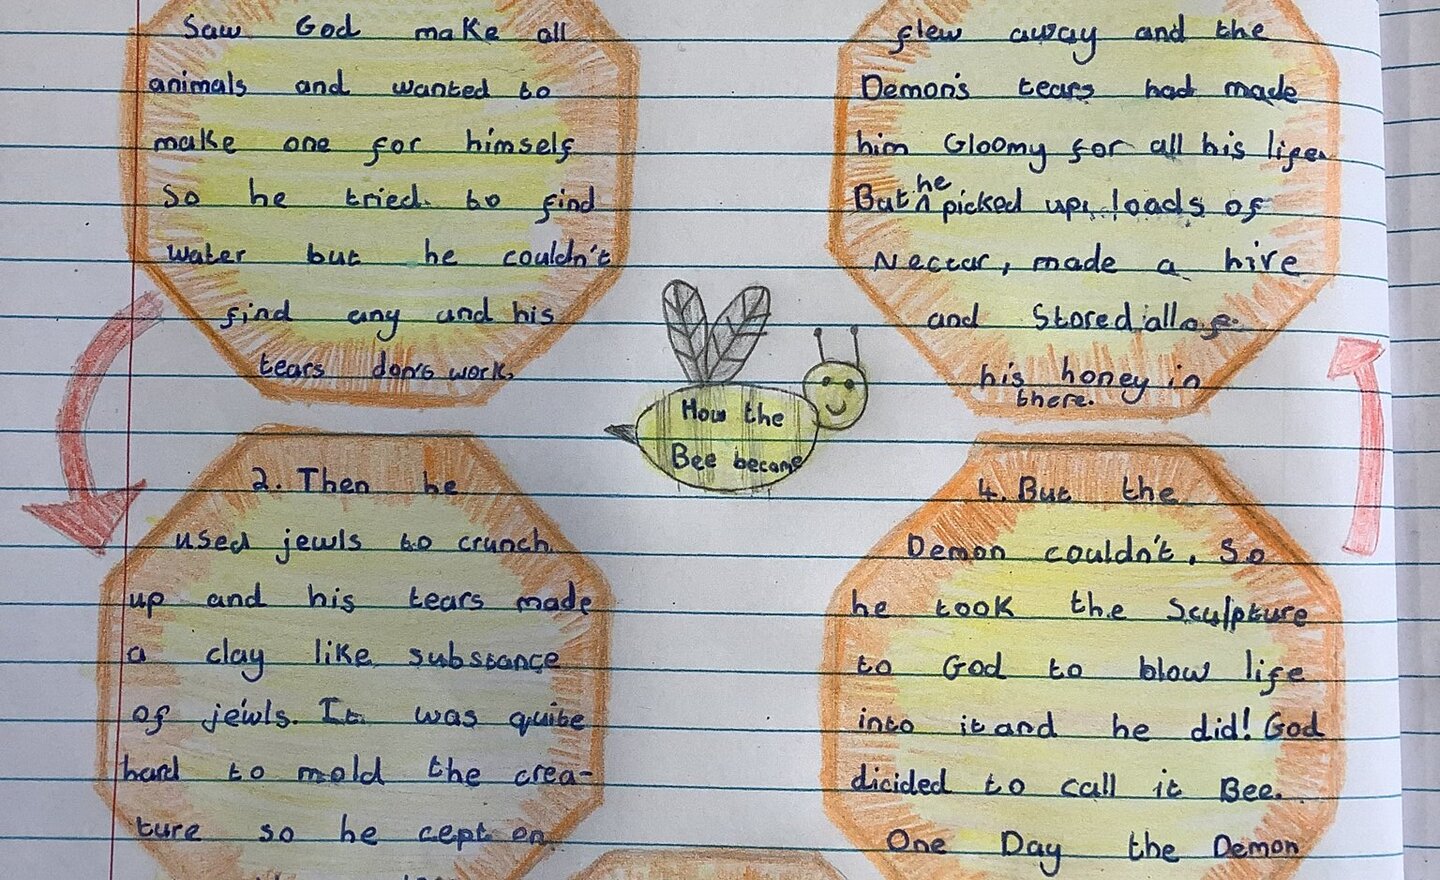 Saw God make all
animals and wanted to
make one for himself
So he tried to find
water but he couldn't
find any and his
tears don't work.
2. Then he
used jewls to crunch
up and his tears made
a clay like substance
of jewls. It was quite
hard to mold the crea-
ture so he cept on
How the
Bee became
4. But the
Demon couldn't. So
he took the Sculpture
to God to blow life
into it and he did! God
dicided to call it Bee.
One Day the Demon
flew away and the
Demon's tears had made
him Gloomy for all his life.
But he picked up loads of
Nectar, made a hive
and Stored all of
his honey in
there.